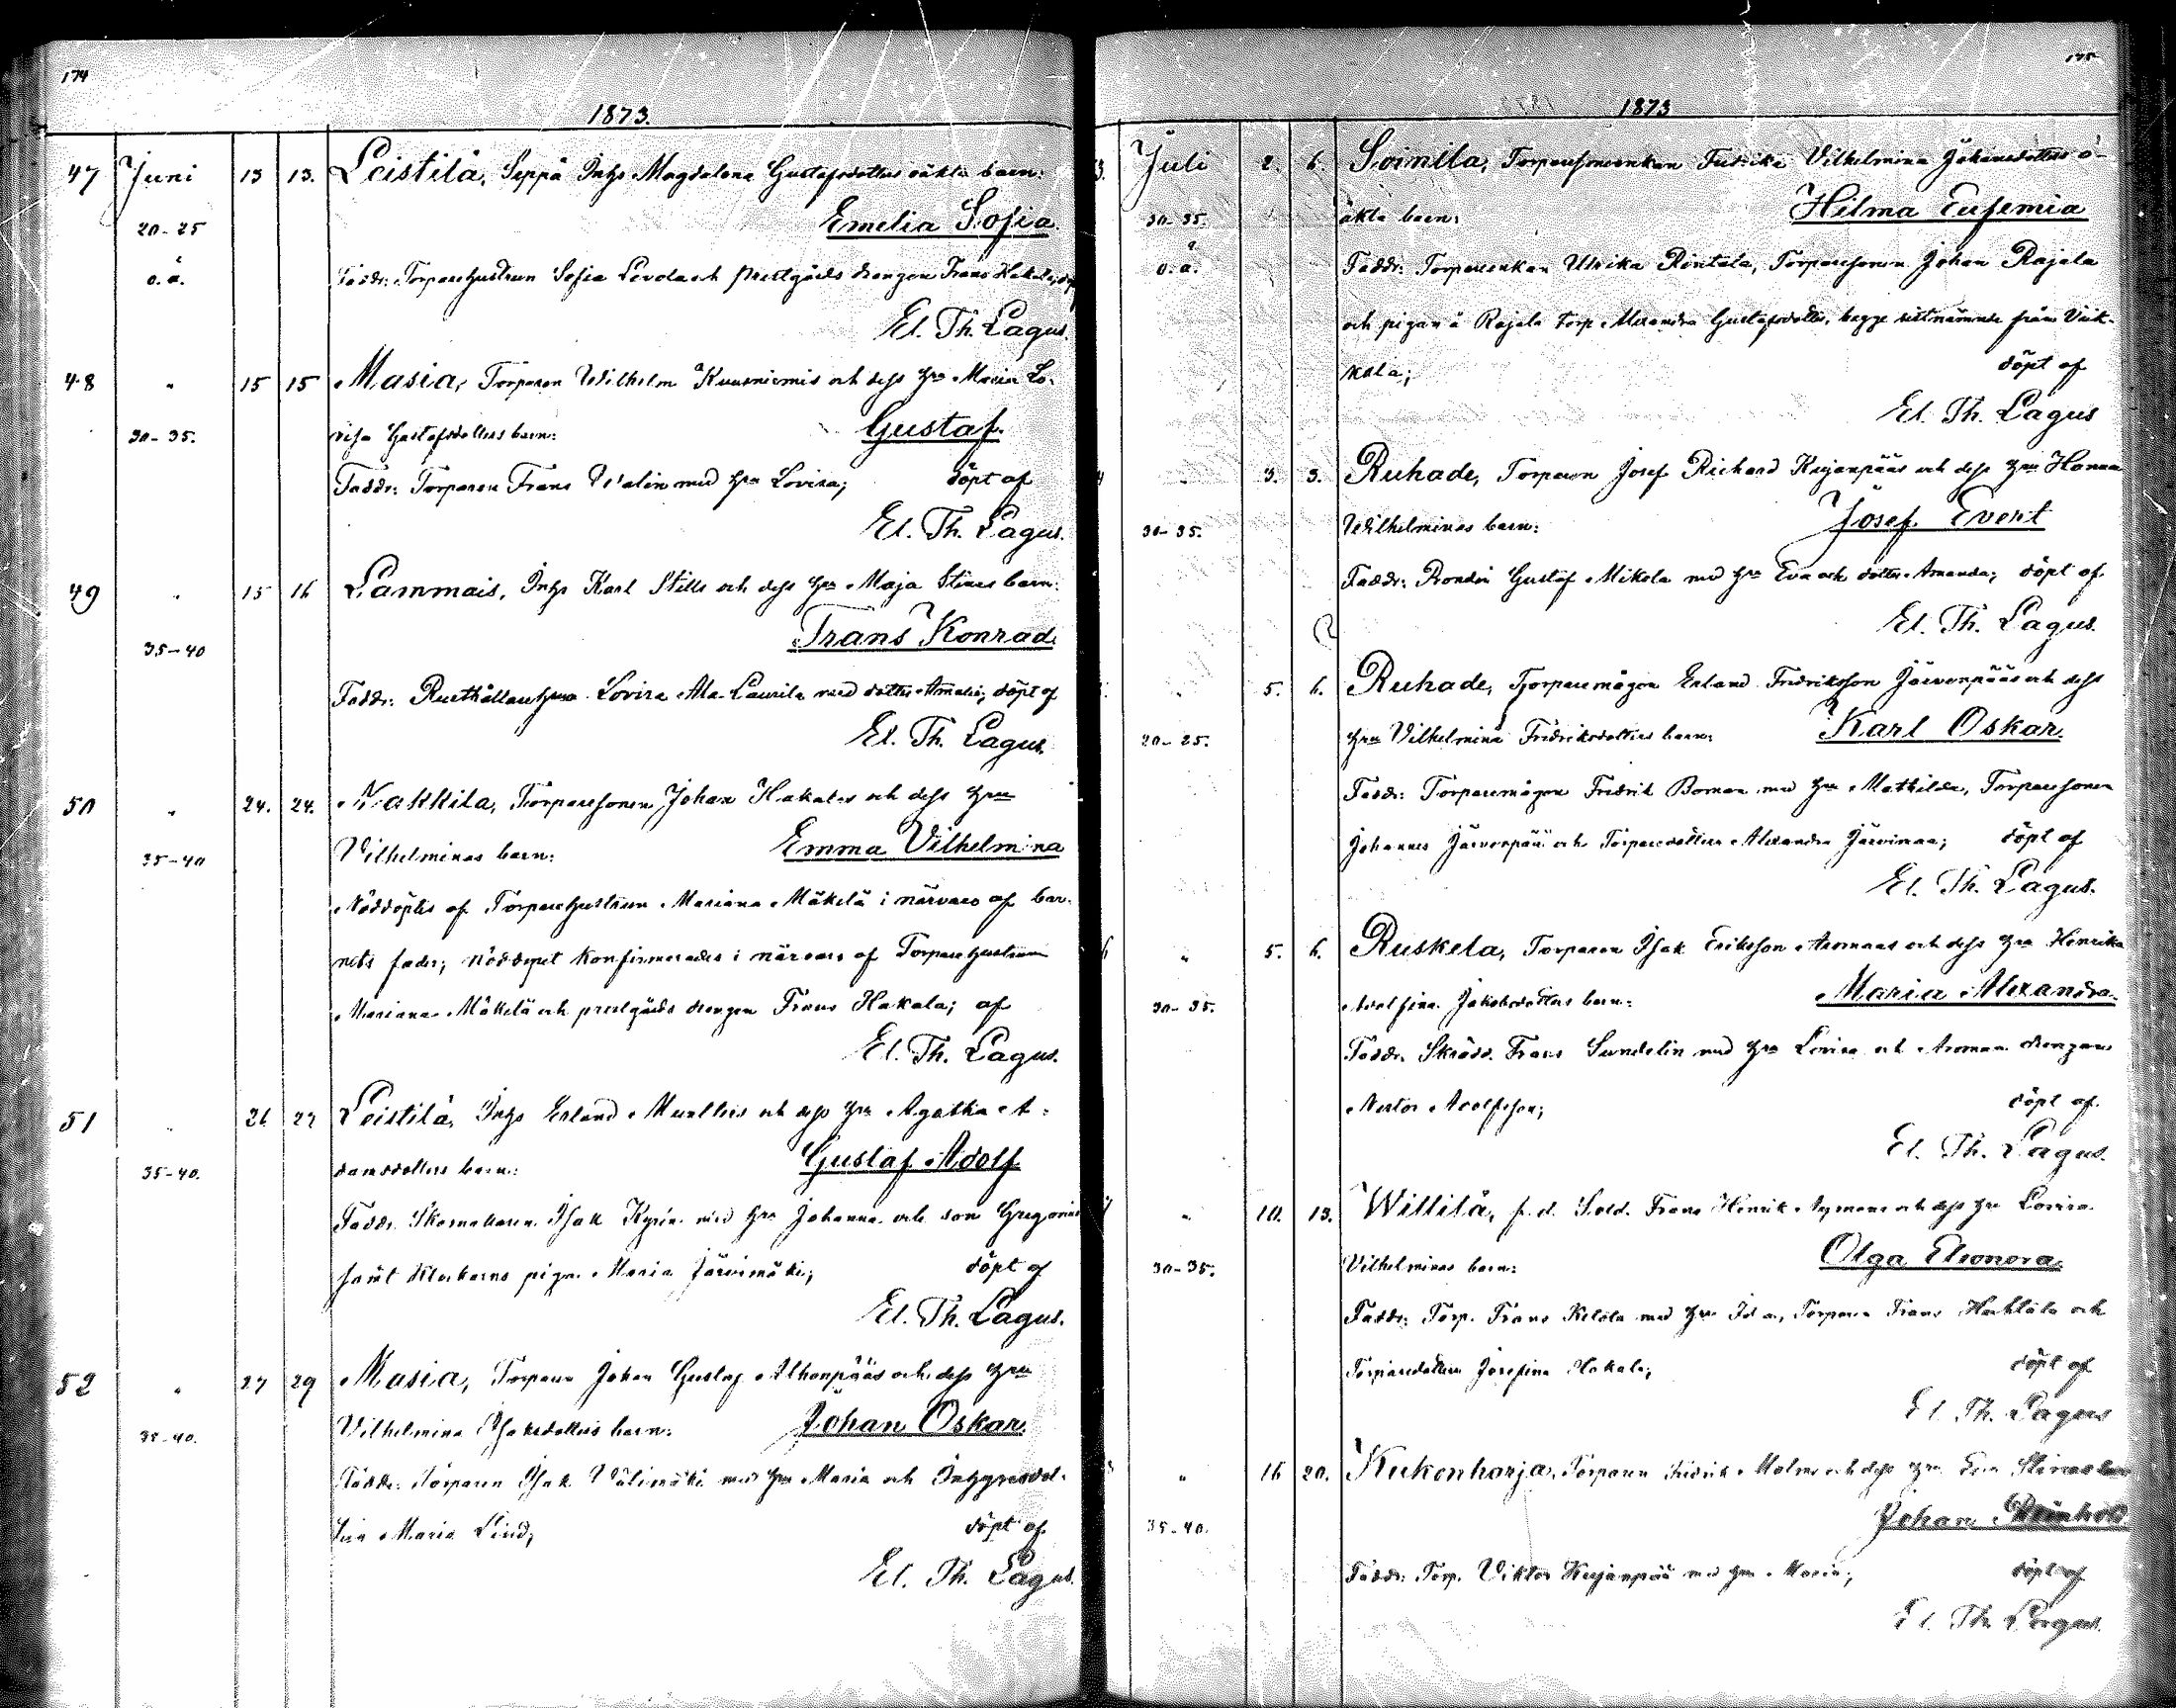 174
1873.
47 Juni 13 13. Leistilä, Seppä Inhs Magdalena Gustafsdotters oäkta barn:
20-25 Emelia Sofia.
o. ä. Faddr: Torparehustrun Sofia Levola och prestgårds drengen Frans Hakala;
El. Th. Lagus.
48 " 15 15 Masia, Torparen Wilhelm Kuusniemis och dess hru Maria Lo-
30-35. visa Gustafsdotters barn: Gustaf.
Faddr: Torparen Frans Walin med hru Lovisa; döpt af
El. Th. Lagus.
49 " 15 16 Lammais, Inhs Karl Stills och dess hru Maja Stinas barn:
35-40 Frans Konrad.
Faddr: Rusthållarehru Lovisa Ala-Laurila med dotter Amalia; döpt af
El. Th. Lagus.
50 " 24. 24. Nakkila, Torparesonen Johan Hakalas och dess hru
35-40 Vilhelminas barn: Emma Vilhelmina
Nöddöptes af Torparehustrun Mariana Mäkelä i närvaro af bar-
nets fader; nöddopet konfirmerades i närvaro af Torparehustrun
Mariana Mäkelä och prestgårds drengen Frans Hakala; af
El. Th. Lagus.
51 " 26 27 Leistilä, Inhs Erland Muelleis och dess hru Agatha A-
35-40. damsdotters barn: Gustaf Adolf.
Faddr: Skomakaren Isak Kyrén med hru Johanna och son Gregorius
samt klockarns piga Maria Järvimäki; döpt af
El. Th. Lagus.
52 " 27 29 Masia, Torparen Johan Gustaf Alhonpääs och dess hru
35-40. Vilhelmina Isaksdotters barn: Johan Oskar.
Faddr: Torparen Isak Välimäki med hru Maria och Inhysesdot-
tern Maria Lind; döpt af
El. Th. Lagus.
175
1873
3. Juli 2. 6. Soinila, Torparesonenkan Fredrika Vilhelmina Johansdotters o-
30-35. äkta barn: Hilma Eufemia
o. ä. Faddr: Torpareenkan Ulrika Rintala, Torparesonen Johan Rajala
och pigan å Rajala torp Alexandra Gustafsdotter, begge sistnämnde från Viik-
kala; döpt af
El. Th. Lagus
4 " 3. 3. Ruhade, Torparen Josef Richard Kujanpääs och dess hru Hanna
30-35. Wilhelminas barn: Josef Evert
Faddr: Bonden Gustaf Mikola med hru Eva och dotter Amanda; döpt af
El. Th. Lagus.
" 5. 6. Ruhade, Torparemågen Erland Fridriksson Järvenpääs och dess
20-25. hru Vilhelmina Fridriksdotters barn: Karl Oskar.
Faddr: Torparemågen Fredrik Boman med hru Mathilda, Torparesonen
Johannes Järvenpää och Torparedottern Alexandra Järvimaa; döpt af
El. Th. Lagus.
6 " 5. 6. Ruskela, Torparen Isak Eriksson Aromaas och dess hru Henrika
30-35. Adolfina Jakobsdotters barn: Maria Alexandra.
Faddr. Skrädd. Frans Sundelin med hru Lovisa och Aromaa drengen
Nestor Adolfsson; döpt af
El. Th. Lagus.
7 " 10. 13. Willilä, f. d. Sold. Frans Henrik Nymans och dess hru Lovisa
30-35. Vilhelminas barn: Olga Eleonora.
Faddr: Torp. Frans Kelola med hru Ida, Torparen Frans Harhlala och
Torparedottern Josefina Hakala; döpt af
El. Th. Lagus
8 " 16 20. Kukonharja, Torparen Fredrik Malms och dess hru Eva Stinas barn
35-40. Johan Reinhold
Faddr: Torp. Viktor Kujanpää med hru Maria; döpt af
El. Th. Lagus.